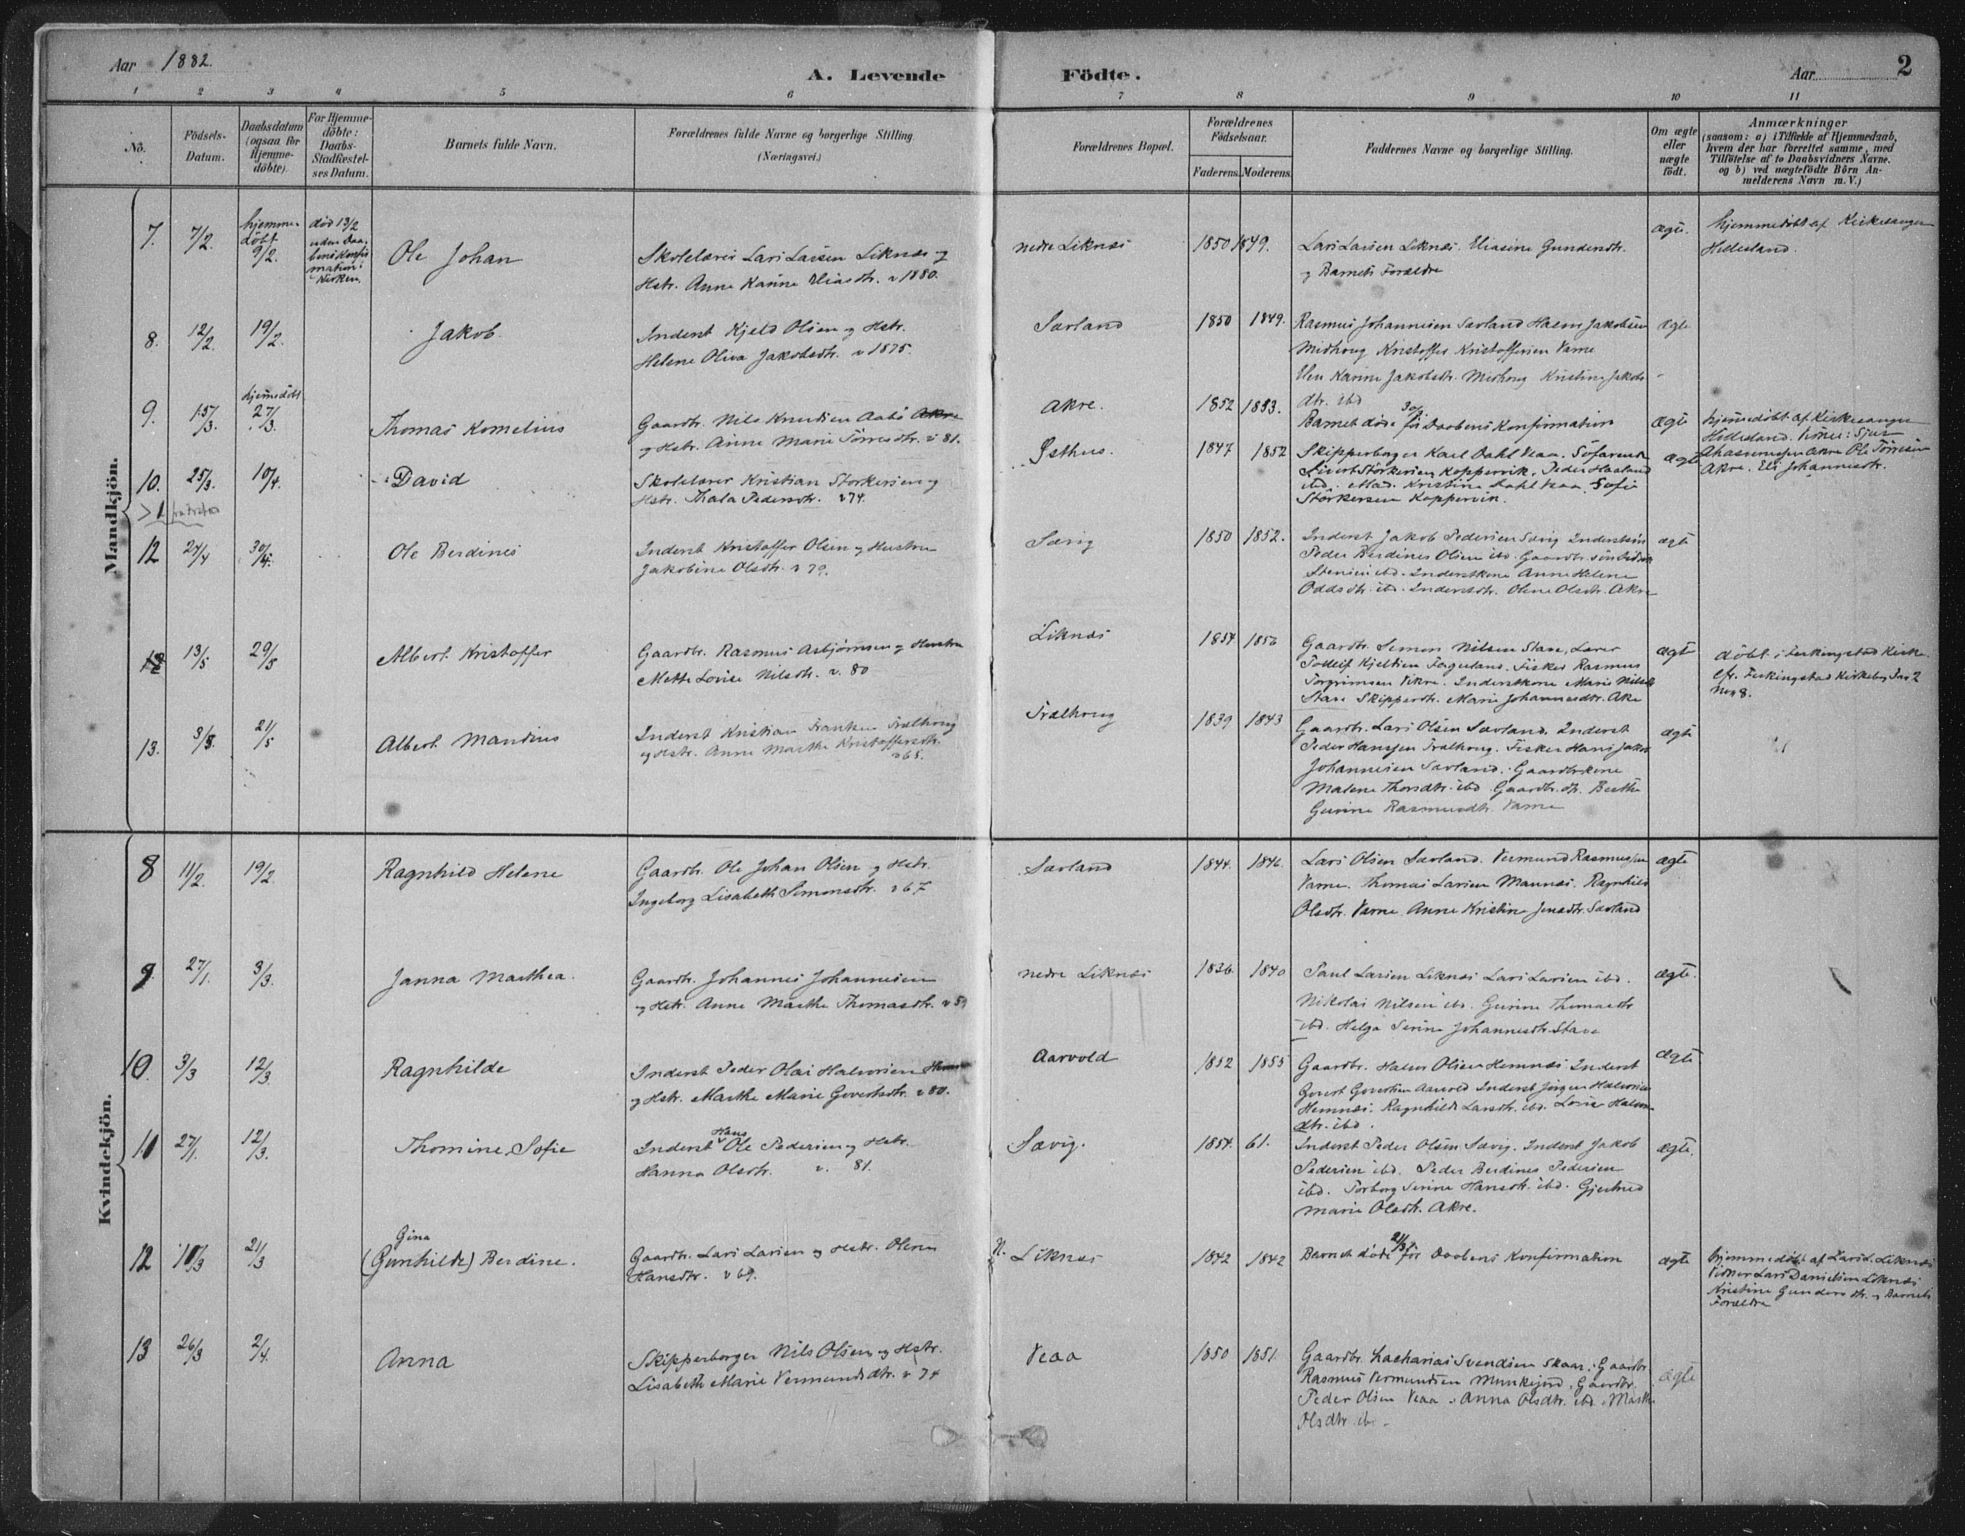 Aar 1882.
A. Levende Födte.
Aar 2
1 2 3 4 5 6 7 8 9 10 11
No.
Födsels-Datum.
Daabsdatum (ogsaa for Hjemme-döbte)
For Hjemme-döbte: Daabs-Stadfæstel-ses Datum.
Barnets fulde Navn.
Forældrenes fulde Navne og borgerlige Stilling.
(Næringsvei.)
Forældrenes Bopæl.
Forældrenes Födselsaar.
Faderens. Moderens.
Faddernes Navne og borgerlige Stilling.
Om ægte eller uægte födt.
Anmærkninger
(saasom: a) i Tilfælde af Hjemmedaab,
hvem der har forrettet samme, med
Tilföielse af to Daabsvidners Navne.
og b) ved uægtefödte Börn An-
melderens Navn m. V.)
Mandkjön.
7. 7/2. hjemme-döbt 9/2. död 13/2 uden Daa-bens Konfir-mation i Kirken.
Ole Johan
Skolelærer Lars Larsen Liknæs og
Hstr. Anne Karine Eliasdtr. v 1880.
nedre Liknæs
1850 1849.
Lars Larsen Liknæs. Eliasine Gundersdtr.
og Barnets Forældre
ægte.
hjemmedöbt af Kirkesanger
Helleland.
8. 12/2. 19/2.
Jakob.
Inderst Kjeld Olsen og Hstr.
Helene Oliva Jakobsdtr. v 1875.
Sævland
1850 1849.
Rasmus Johannesen Sævland Jakobsen
Midhoug Kristoffer Kristoffersen Varne
Karine Jakobsdtr. Midhoug Kristine Jakobs-
dtr. ibd
ægte
9. 15/3. hjemmedöbt 27/3.
Thomas Kornelius
Gaardbr. Nils Knudsen
og Hstr. Anne Marie Törresdtr. v 81.
Akre.
1852 1853.
Barnet döde 30/3 för Daabens Konfirmation
ægte
hjemmedöbt af Kirkesanger
Helleland. Vidner: Sjur
Akre Ole Törresen
Akre. Eli Johannesdtr.
10. 25/3. 10/4.
David
Skolelærer Kristian Storkersen og
Hstr. Thala Pedersdtr. v 74.
Østhus.
1847 1852
Skipperborger Karl Dahl Veaa. Söfarende
Sivert Störkersen Koppervik. Peder Haaland
ibd. Mad. Kristine Dahl Veaa Sofie
Störkersen Koppervik.
ægte
12 27/4 30/4.
Ole Berdines
Inderst Kristoffer Olsen og Hustru
Jakobine Olsdtr. v 79.
Sævig
1850 1852.
Inderst Jakob Pedersen Sævig Inderstsön
Peder Berdines Olsen ibd. Gaardbr. sön
Stensen ibd. Inderstkone Anne Helene
Oddsdtr. ibd. Inderstdtr. Olene Olsdtr. Akre
ægte
12 13/5 29/5
Albert Kristoffer
Gaardbr. Rasmus Asbjörnsen og Hustru
Mette Lovise Nilsdtr. v. 80
Liknæs
1854 1856
Gaardbr. Simon Nilsen Stave, Lærer
Tollef Kjeldsen Fergeland. Fisker Rasmus
Torgrimsen Vikre. Inderstkone Marie Nilsdtr
Stave Skipperdtr. Marie Johannesdtr. Akre
ægte
döbt i Ferkingstad Kirke
cfr. Ferkingstad Kirkebog Pag 2
No 8.
13. 3/5. 21/5
Albert Mandius
Inderst Kristian Trælhoug
og Hstr. Anne Marthe Kristoffersdtr.
v 65.
Trælhoug
1839 1843
Gaardbr. Lars Olsen Sævland. Inderst
Peder Hansen Trælhoug. Fisker Hans Jakob
Johannesen Sævland. Gaardbrkone
Malene Thorsdtr. ibd Gaardbr. dtr. Berthe
Gurine Rasmusdtr. Varne
ægte
Kvindekjön.
8 11/2. 19/2.
Ragnhild Helene
Gaardbr. Ole Johan Olsen og Hstr.
Ingeborg Lisabeth Simonsdtr. v 67
Sævland
1844. 1846.
Lars Olsen Sævland. Vermund Rasmussen
Varne. Thomas Larsen Mannæs. Ragnhild
Olsdtr. Varne. Anne Kristine Jensdtr. Sævland
ægte
9 27/1. 3/3.
Janna Marthea.
Gaardbr. Johannes Johannesen
og Hstr. Anne Marthe Thomasdtr. v 59
nedre Liknæs
1836 1840
Paul Larsen Liknæs Lars Larsen ibd.
Nikolai Nilsen ibd. Gurine Thomasdtr
ibd. Helga Serine Johannesdtr. Stave
ægte.
10. 3/3 12/3
Ragnhilde
Inderst Peder Olai Halvorsen
og Hstr. Marthe Marie Govertsdtr. v 80.
Aarvold
1852 1855
Gaardbr. Halvor Olsen Hemnæs. Inderst
Govert Govertsen Aarvold Inderst Jörgen Halvorsen
Hemnæs. Ragnhilde Larsdtr. ibd. Lovise Halvors
dtr. ibd.
ægte
11 27/1. 12/3.
Thomine Sofie
Inderst Hans Ole Pedersen og Hstr.
Hanna Olsdtr. v. 81.
Sævig.
1854. 61.
Inderst Peder Olsen Sævig. Inderst Jakob
Pedersen ibd. Peder Berdines Pedersen
ibd. Torborg Serine Hansdtr. ibd. Gjertrud
Marie Olsdtr. Akre.
ægte.
12 10/3 21/3
Gina
(Gunhilde) Berdine.
Gaardbr. Lars Larsen og Hstr. Olene
Hansdtr. v 69.
N. Liknæs
1842 1842
Barnet döde 21/3 för Daabens Konfirmation
ægte
hjemmedöbt af Lars L. Liknæs
Vidner Lars Danielsen Liknæs
Kristine Gundersdtr. og Barnets
Forældre
13 26/3 2/4.
Anna
Skipperborger Nils Olsen og Hstr.
Lisabeth Marie Vermundsdtr. v 74
Veaa
1850 1851.
Gaardbr. Zacharias Svendsen Skaar. Gaardbr.
Rasmus Vermundsen Munkejord, Gaardbr.
Peder Olsen Veaa. Anna Olsdtr. ibd. Marthe
Olsdtr. ibd.
ægte